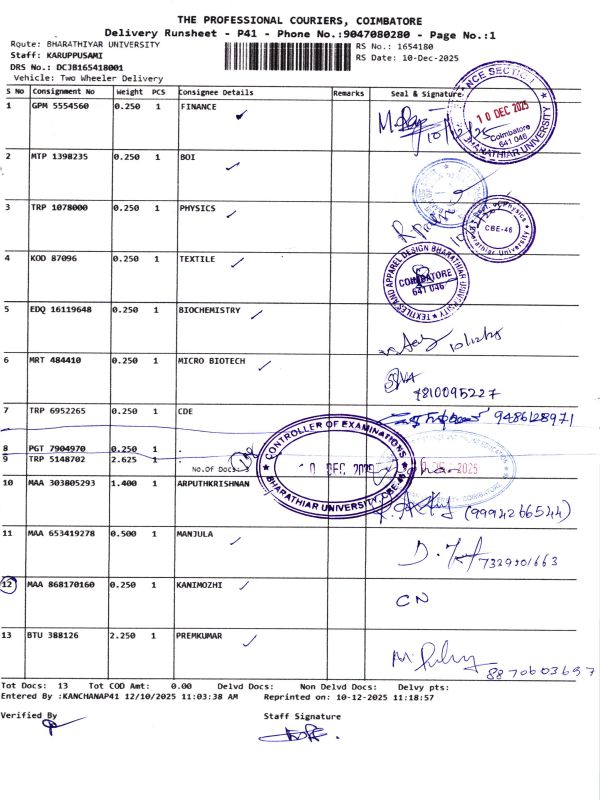 THE PROFESSIONAL COURIERS, COIMBATORE
Delivery Runsheet - P41 - Phone No.:9047080280 - Page No.:1
Route: BHARATHIYAR UNIVERSITY
Staff: KARUPPUSAMI
DRS No.: DCJB165418001
Vehicle: Two Wheeler Delivery
RS No.: 1654180
RS Date: 10-Dec-2025
S No Consignment No Weight PCS Consignee Details Remarks Seal & Signature
1 GPM 5554560 0.250 1 FINANCE
10/12/25
10 DEC 2025
Coimbatore
641 046
BHARATHIAR UNIVERSITY
2 MTP 1398235 0.250 1 BOI
3 TRP 1078000 0.250 1 PHYSICS
CBE-46
4 KOD 87096 0.250 1 TEXTILE
TEXTILES AND APPAREL DESIGN BHARATHIAR UNIVERSITY
COIMBATORE
641 046
5 EDQ 16119648 0.250 1 BIOCHEMISTRY
10/12/25
6 MRT 484410 0.250 1 MICRO BIOTECH
7810095227
7 TRP 6952265 0.250 1 CDE
9486128971
8 PGT 7904970 0.250 1 .
9 TRP 5148702 2.625 1 .
No.Of Docs:
CONTROLLER OF EXAMINATIONS
10 DEC 2025
BHARATHIAR UNIVERSITY CBE-46
2025
10 MAA 303805293 1.400 1 ARPUTHKRISHNAN
(9994266544)
11 MAA 653419278 0.500 1 MANJULA
12 MAA 868170160 0.250 1 KANIMOZHI
CN
13 BTU 388126 2.250 1 PREMKUMAR
8870603697
Tot Docs: 13 Tot COD Amt: 0.00 Delvd Docs: Non Delvd Docs: Delvy pts:
Entered By :KANCHANAP41 12/10/2025 11:03:38 AM Reprinted on: 10-12-2025 11:18:57
Verified By
Staff Signature